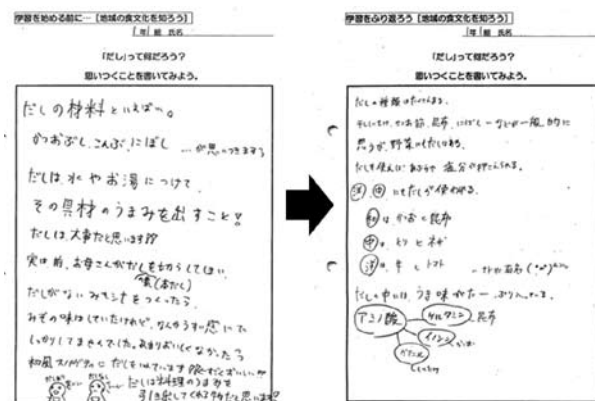 学習を始める前に…［地域の食文化を知ろう］
年 組 氏名
「だし」って何だろう?
思いつくことを書いてみよう。
だしの材料といえば…。
かつおぶし、こんぶ、にぼし …が思いつきます
だしは、水やお湯につけて
その具材のうまみを出すこと!
だしは、大事だと思います
実は前、お母さんがだしを切らしてしまい
だしがないみそ汁をつくったら
みその味はしていたけれど、なんか
しっかりしてませんでした。あまりおいしくなかった
和風スパゲティにだしを
だしは料理のうまみを
引き出してくれる物だと思います!
学習をふり返ろう［地域の食文化を知ろう］
年 組 氏名
「だし」って何だろう?
思いつくことを書いてみよう。
だしの種類は
干ししいたけ、かつお節、昆布、にぼし…などが一般的だと
思うが、野菜にもだしはある。
だしを使えば 塩分が押さえられる。
洋、中 にもだしが使われる。
和は かつおと昆布
中は、トリとネギ
洋は、牛とトマト
だしの中には、うま味が
アミノ酸
グルタミン 昆布
イノシン
グアニル